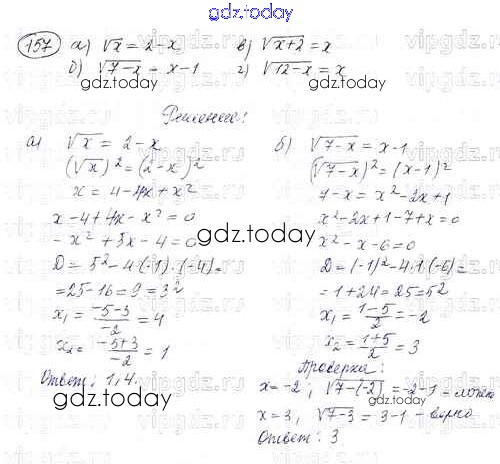 gdz.today
157 а) √x = 2-x в) √x+2 = x
б) √7-x = x-1 г) √12-x = x
gdz.today
Решение:
а) √x = 2-x
(√x)² = (2-x)²
x = 4-4x+x²
x-4+4x-x² = 0
-x²+5x-4=0
D = 5²-4·(-1)·(-4)=
=25-16=9=3²
x₁ = -5-3/-2 = 4
x₂ = -5+3/-2 = 1
Ответ: 1, 4.
б) √7-x = x-1
(√7-x)² = (x-1)²
7-x = x²-2x+1
x²-2x+1-7+x=0
x²-x-6=0
D=(-1)²-4·1·(-6)=
=1+24=25=5²
x₁ = 1-5/2 = -2
x₂ = 1+5/2 = 3
Проверка:
x=-2; √7-(-2) = -2-1 -
x=3, √7-3 = 3-1 - верно
Ответ: 3
gdz.today
gdz.today
gdz.today